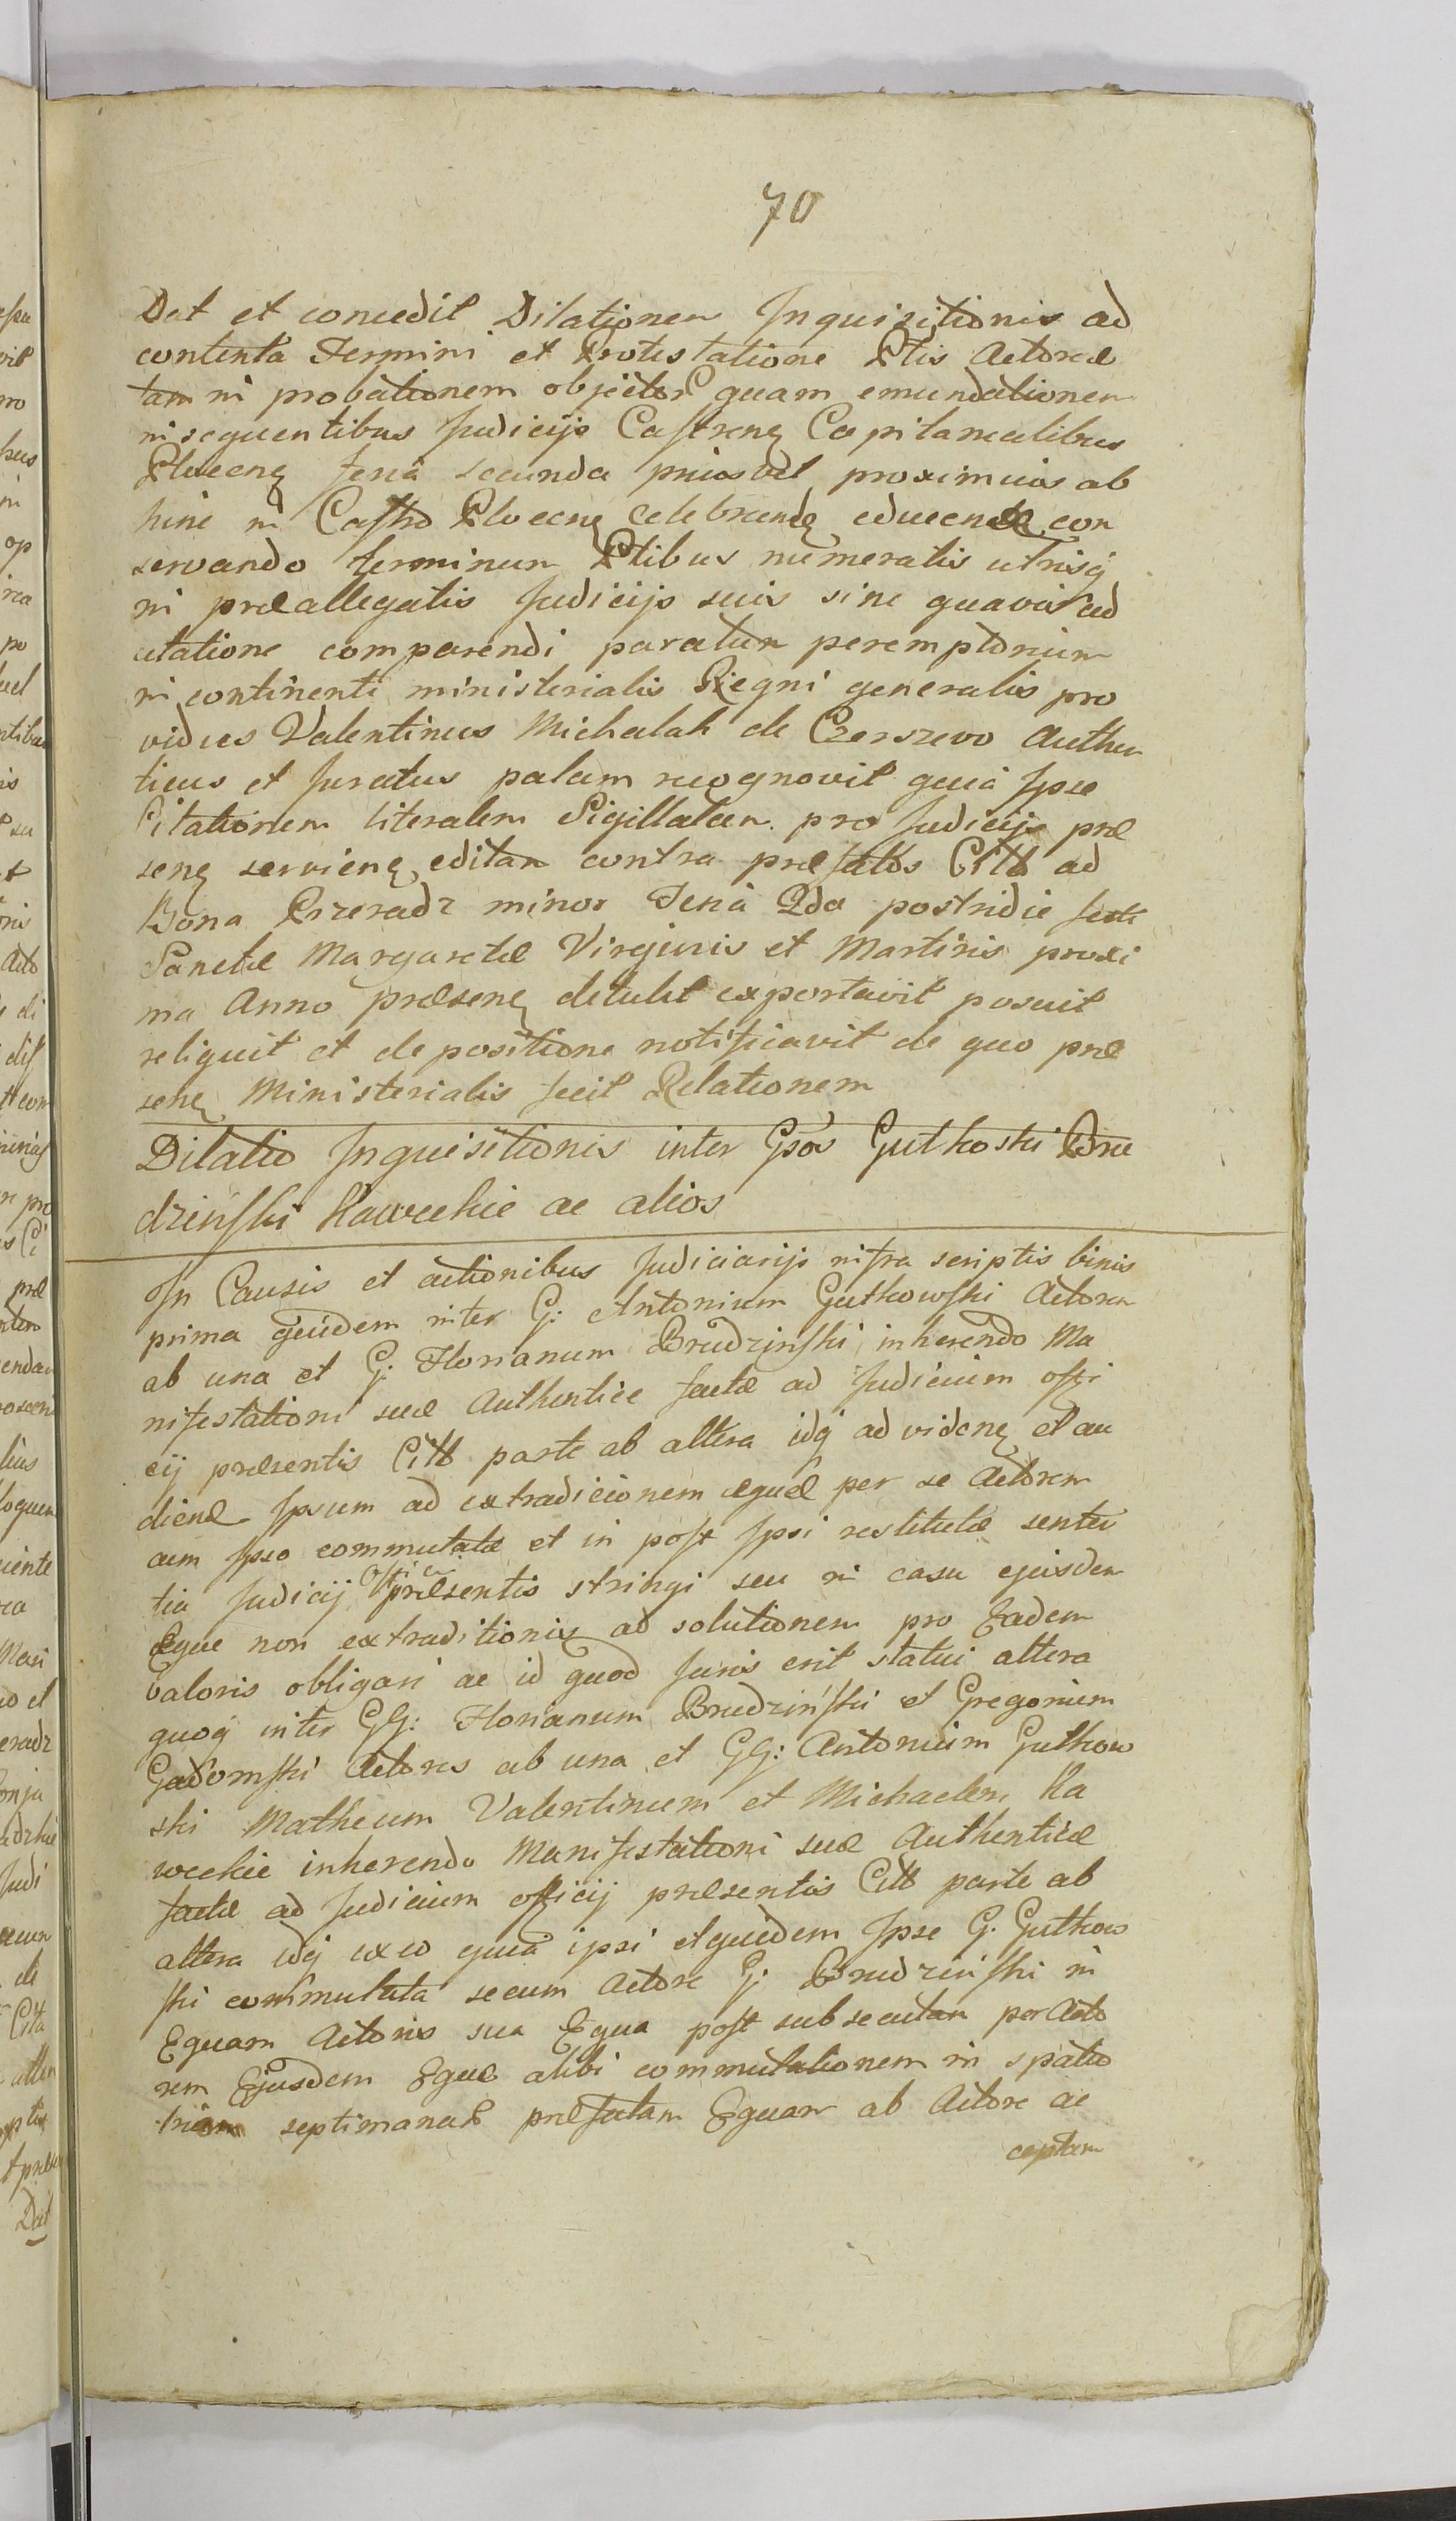 70
Dat et concedit Dilationem Inquisitionis ad
contenta Termini et Protestatione Ptis Actoreæ
tam in probationem objector quam emundationem
in sequentibus Judicijs Castrenę Capitanealibus
Plocenę feria secunda prius vel proximius ab
hinc in Castro Plocenę celebrandę educendæ con
servando terminum Ptibus numeratis utrisq
in præallegatis Judicijs suis sine quavis ad
citatione comparendi paratum peremptorium
in continenti ministerialis Regni generalis pro
vidus Valentinus Michalak de Czerszewo Authen
ticus et Juratus palam recognovit quia Ipse
Citationem literalem Sigillatam pro Judicijs præ
senę servienę editam contra præfatos Citt ad
Bona Przeradz minor Feria 2da postridie festi
Sanctæ Margaretæ Virginis et Martiris proxi
ma Anno præsenę detulit exportavit posuit
reliquit et de positione notificavit de quo præ
senę Ministerialis fecit Relationem
Dilatio Inquisitionis inter Gsos Gutkoski Bru
dzinski Kaweckie ac alios
In Causis et actionibus Judiciarijs infra scriptis binis
prima quidem inter G: Antonium Gutkowski Actorem
ab una et G: Florianum Brudzinski inherendo Ma
nifestationi suæ Authentice factæ ad Judicium offi
cij præsentis Citt parte ab altera idq ad videnę et au
diend Ipsum ad extradicionem equæ per se Actorem
cum Ipso commutatæ et in post Ipsi restitutæ senten
tia Judicij Officij præsentis stringi seu in casu ejusdem
Equæ non extraditionis ad solutionem pro Eadem
valoris obligari ac id quod Juris erit statui altera
quoq inter GG: Florianum Brudziński et Gregorium
Gadomski Actores ab una et GG: Antonium Gutkow
ski Matheum Valentinum et Michaelem Ka
weckie inherendo Manifestationi suæ Authenticæ
factæ ad Judicium officij præsentis Citt parte ab
altera idq ex eo quia ipsi et quidem Ipse G. Gutkow
ski commutata secum Actore G: Brudzinski in
Equam Actoris sua Equa post subsecutam per Acto
rem Ejusdem Equæ alibi commutationem in spatio
trium septimanar præfatam Equam ab Actore ac
ceptam